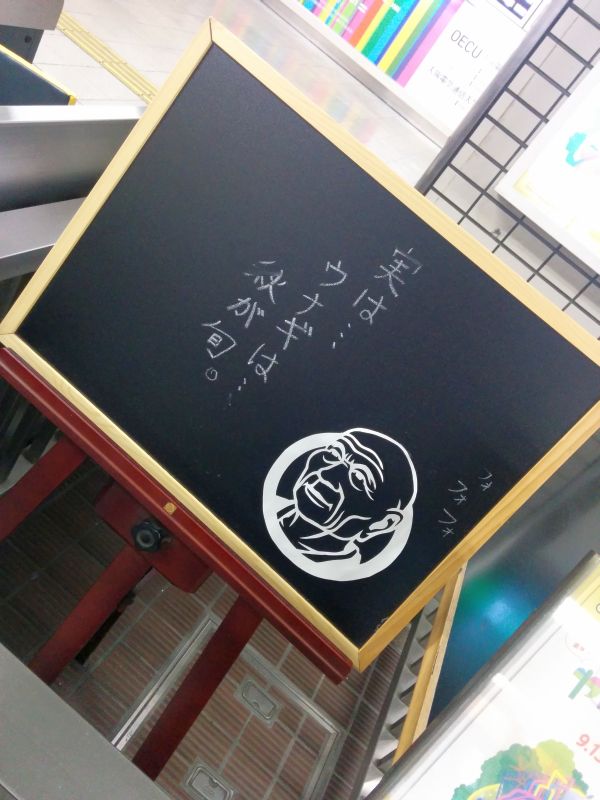 実は…
ウナギは…
秋が旬。
フォフォフォ
OECU